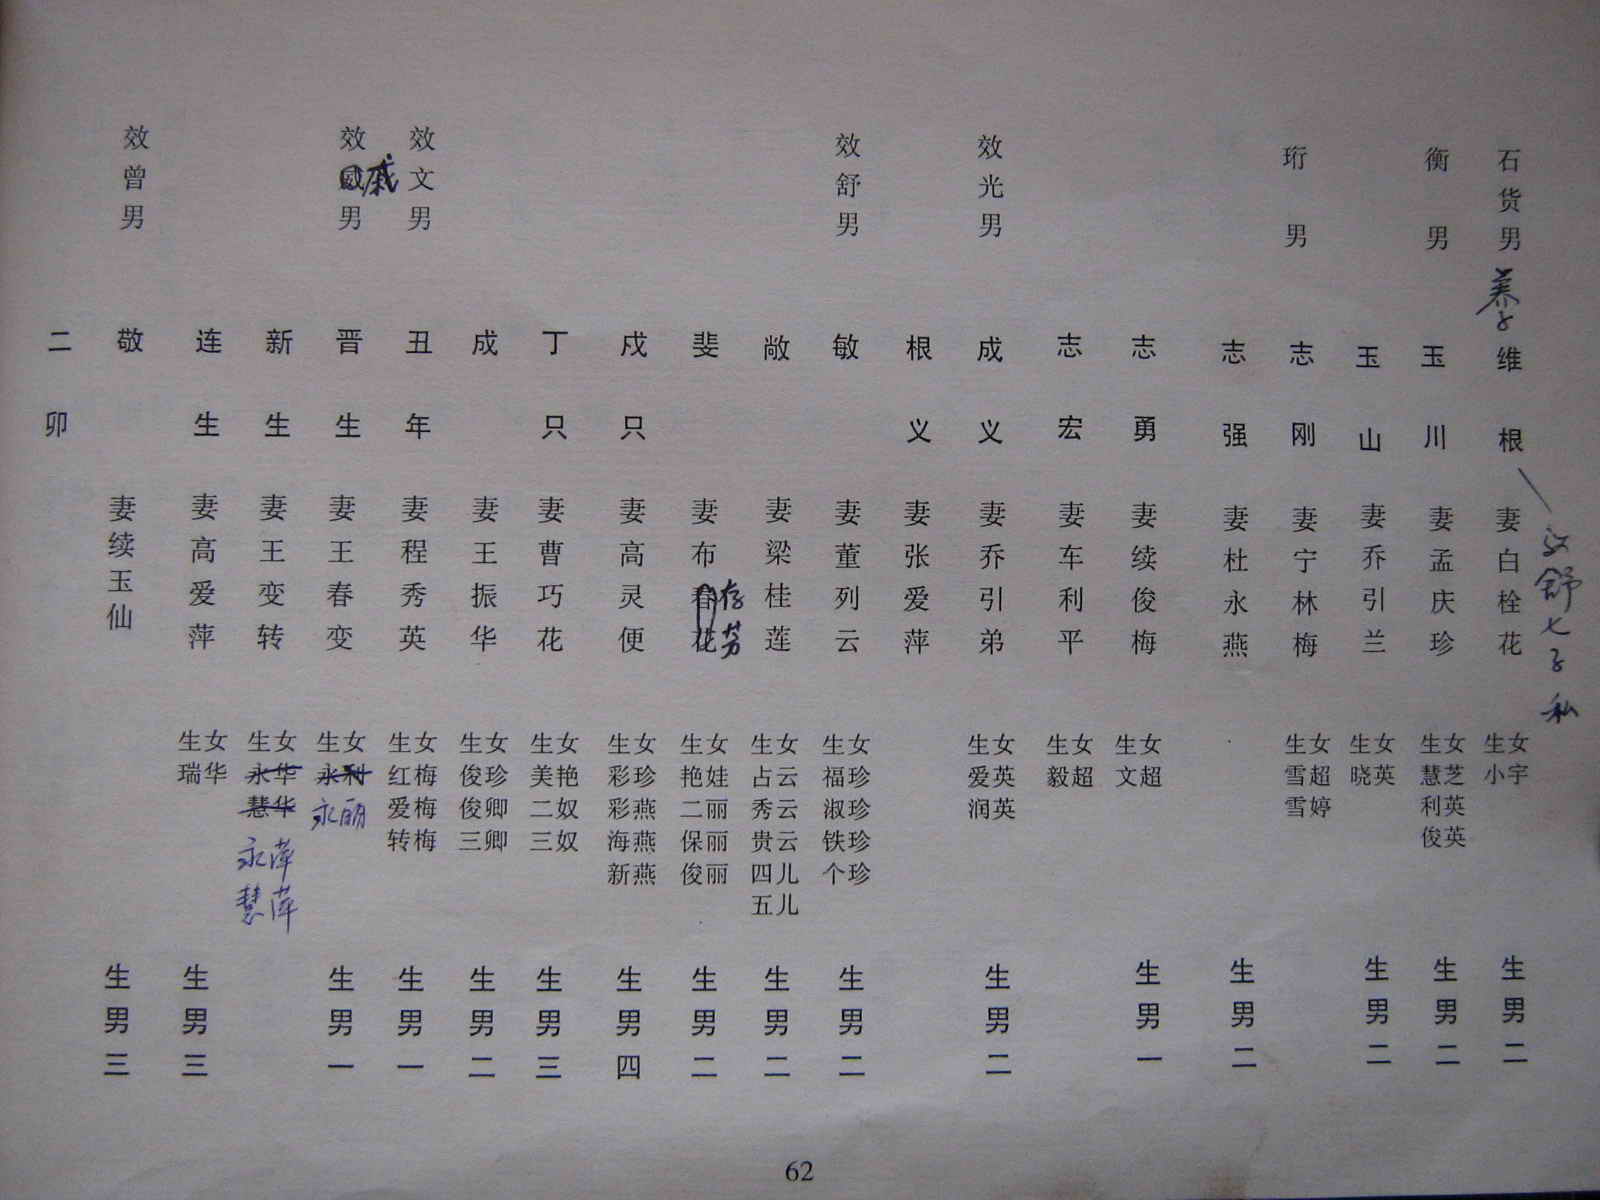 石货男
养子
维根
妻白栓花
生女
小宇
生男二
舒七子
衡男
玉川
妻孟庆珍
生女
慧芝
利英
俊英
生男二
玉山
妻乔引兰
生女
晓英
生男二
珩男
志刚
妻宁林梅
生女
雪超
雪婷
志强
妻杜永燕
生男二
志勇
妻续俊梅
生女
文超
生男一
志宏
妻车利平
生女
毅超
效光男
成义
妻乔引弟
生女
爱英
润英
生男二
根义
妻张爱萍
效舒男
敏
妻董列云
生女
福珍
淑珍
铁珍
个珍
生男二
敞
妻梁桂莲
生女
占云
秀云
贵云
四儿
五儿
生男二
斐
妻布春花
存芳
生女
艳娃
二丽
保丽
俊丽
生男二
成只
妻高灵便
生女
彩珍
彩燕
海燕
新燕
生男四
丁只
妻曹巧花
生女
美艳
二奴
三奴
生男三
成
妻王振华
生女
俊珍
俊卿
三卿
生男二
效文男
丑年
妻程秀英
生女
红梅
爱梅
转梅
生男一
效威男
戚
晋生
妻王春变
生女
永利
永丽
生男一
新生
妻王变转
生女
永华
慧华
永萍
慧萍
连生
妻高爱萍
生女
瑞华
生男三
效曾男
敬
妻续玉仙
生男三
二卯
62